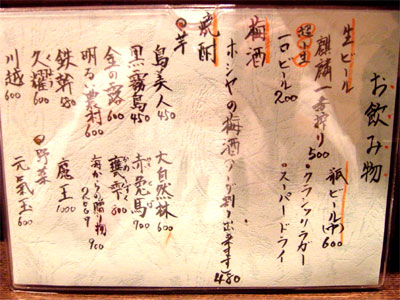 お飲み物
生ビール
麒麟一番搾り 500
超小生
一口ビール 200
瓶ビール(中) 600
・クラシックラガー
・スーパードライ
梅酒
ホシヤの梅酒
出来ます 480
焼酎
芋
島美人 450
黒霧島 450
金の露 600
明るい農村 600
鉄幹
久耀 600
川越 600
大自然林 600
赤兎馬 700
甕雫 800
海からの贈り物 2009 900
魔王 1000
野菜
元気玉 600